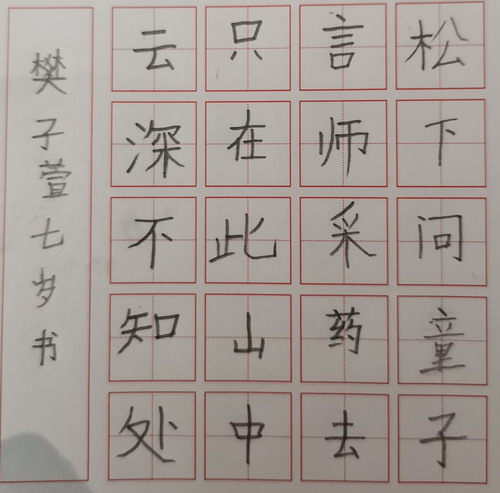 松下问童子
言师采药去
只在此山中
云深不知处
樊子萱七岁书